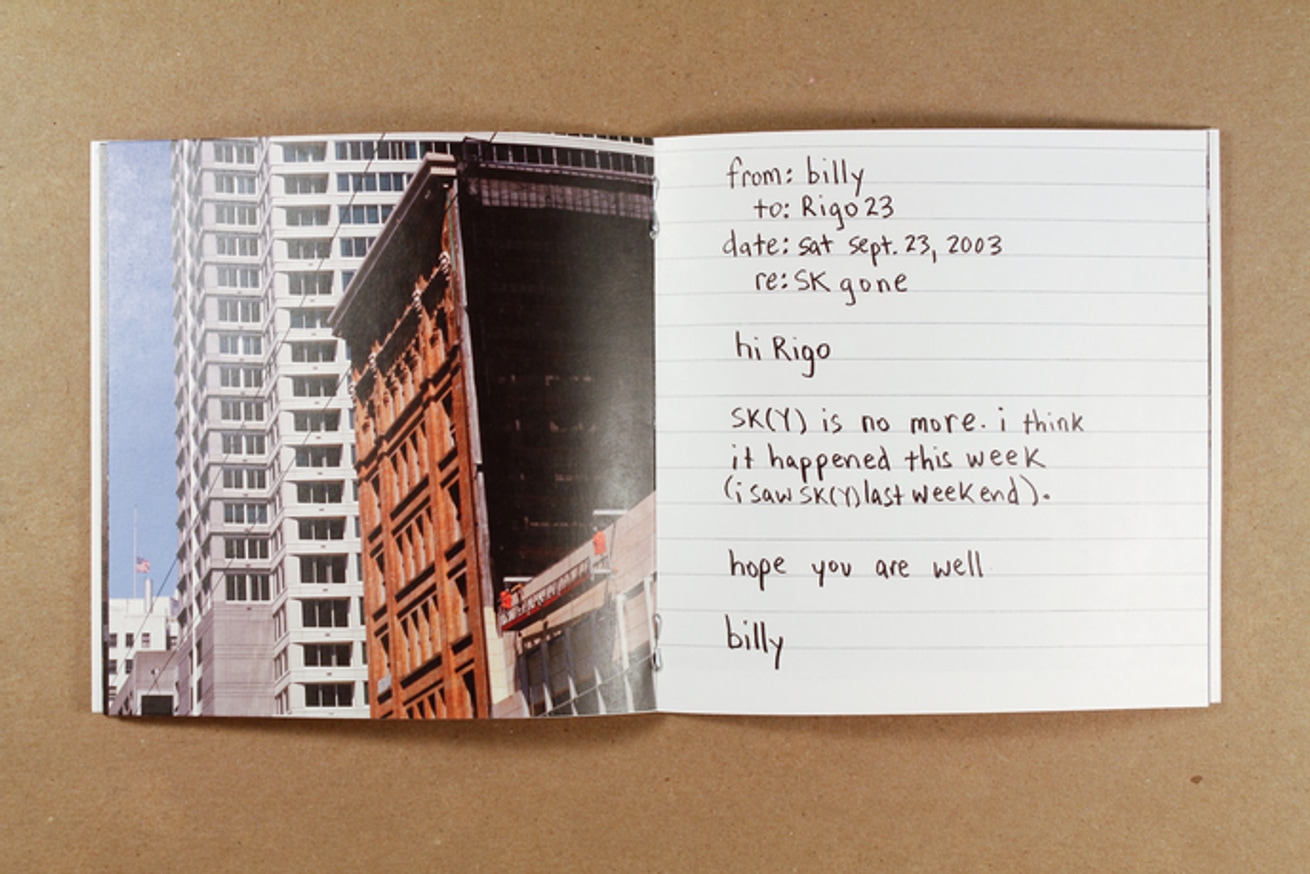 from: billy
to: Rigo 23
date: sat sept. 23, 2003
re: SK gone
hi Rigo
SK(Y) is no more. i think
it happened this week
(i saw SK(Y) last weekend).
hope you are well
billy